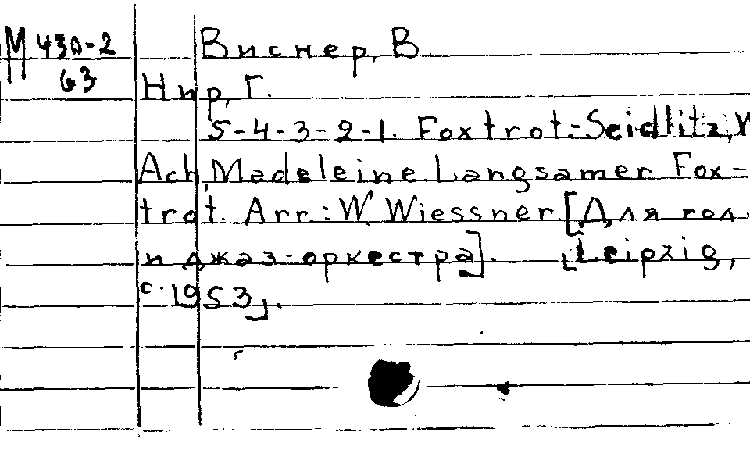 М 450-2 Виснер, В.
63 Нир, Г.
5-4-3-2-1. Foxtrot=Seidlitz, W
Ach, Madeleine Langsamer Fox=
trot. Arr.: W. Wiessner [Для гол.
и джаз-оркестра]. [Leipzig,
c. 1953].